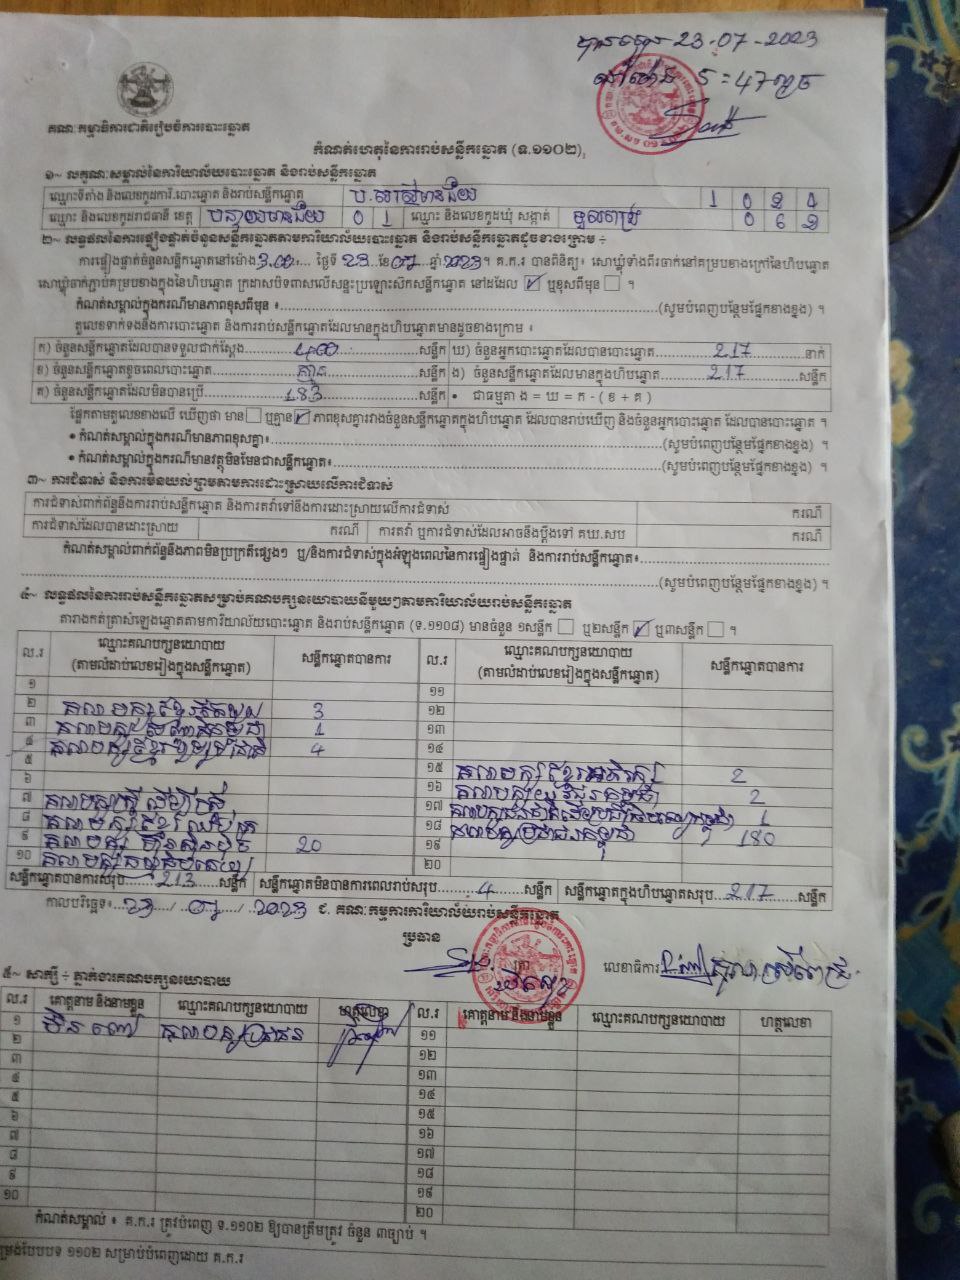 បានចូល 23-07-2023
នៅម៉ោង 5:47 ល្ងាច
គណៈកម្មាធិការជាតិរៀបចំការបោះឆ្នោត
កំណត់ហេតុនៃការរាប់សន្លឹកឆ្នោត (ទ.១១០២)
១~ លក្ខណៈសម្គាល់នៃការិយាល័យបោះឆ្នោត និងរាប់សន្លឹកឆ្នោត
ឈ្មោះទីតាំង និងលេខកូដការិ.បោះឆ្នោត និងរាប់សន្លឹកឆ្នោត
ឈ្មោះ និងលេខកូដរាជធានី ខេត្ត បន្ទាយមានជ័យ 0 1 ឈ្មោះ និងលេខកូដឃុំ សង្កាត់
២~ លទ្ធផលនៃការផ្ទៀងផ្ទាត់ចំនួនសន្លឹកឆ្នោតតាមការិយាល័យបោះឆ្នោត និងរាប់សន្លឹកដូចខាងក្រោម ÷
ការផ្ទៀងផ្ទាត់ចំនួនសន្លឹកឆ្នោតនៅម៉ោង 3:00 ថ្ងៃទី 23 ខែ 07 ឆ្នាំ 2023 ។ គ.ក.រ បានពិនិត្យ៖ សោឃ្លុំទាំងពីរចាក់នៅគម្របខាងក្រៅនៃហិបឆ្នោត
សោឃ្លុំចាក់ភ្ជាប់គម្របខាងក្នុងនៃហិបឆ្នោត ក្រដាសបិទពាសលើសន្ទះប្រឡោះសឹកសន្លឹកឆ្នោត នៅដដែល ☑ ឬខុសពីមុន ☐ ។
កំណត់សម្គាល់ក្នុងករណីមានភាពខុសពីមុន ៖ (សូមបំពេញបន្ថែមផ្នែកខាងខ្នង) ។
តួលេខទាក់ទងនឹងការបោះឆ្នោត និងការរាប់សន្លឹកឆ្នោតដែលមានក្នុងហិបឆ្នោតមានដូចខាងក្រោម ៖
ក) ចំនួនសន្លឹកឆ្នោតដែលបានទទួលជាក់ស្តែង 400 សន្លឹក ឃ) ចំនួនអ្នកបោះឆ្នោតដែលបានបោះឆ្នោត 217 នាក់
ខ) ចំនួនសន្លឹកឆ្នោតខូចពេលបោះឆ្នោត គ្មាន សន្លឹក ង) ចំនួនសន្លឹកឆ្នោតដែលមានក្នុងហិបឆ្នោត 217 សន្លឹក
គ) ចំនួនសន្លឹកឆ្នោតដែលមិនបានប្រើ 183 សន្លឹក • ជាធម្មតា ង = ឃ = ក - ( ខ + គ )
ផ្អែកតាមតួលេខខាងលើ ឃើញថា មាន ☐ ឬគ្មាន ☑ ភាពខុសគ្នារវាងចំនួនសន្លឹកឆ្នោតក្នុងហិបឆ្នោត ដែលបានរាប់ឃើញ និងចំនួនអ្នកបោះឆ្នោត ដែលបានបោះឆ្នោត ។
• កំណត់សម្គាល់ក្នុងករណីមានភាពខុសគ្នា៖ (សូមបំពេញបន្ថែមផ្នែកខាងខ្នង) ។
• កំណត់សម្គាល់ក្នុងករណីមានវត្ថុមិនមែនជាសន្លឹកឆ្នោត៖ (សូមបំពេញបន្ថែមផ្នែកខាងខ្នង) ។
៣~ ការជំទាស់ និងការមិនយល់ព្រមតាមការដោះស្រាយលើការជំទាស់
ការជំទាស់ពាក់ព័ន្ធនឹងការរាប់សន្លឹកឆ្នោត និងការតវ៉ាទៅនឹងការដោះស្រាយលើការជំទាស់ ករណី
ការជំទាស់ដែលបានដោះស្រាយ ករណី ការតវ៉ា ឬការជំទាស់ដែលអាចនឹងប្តឹងទៅ គឃ.សប ករណី
កំណត់សម្គាល់ពាក់ព័ន្ធនឹងភាពមិនប្រក្រតីផ្សេងៗ ឬ/និងការជំទាស់ក្នុងអំឡុងពេលនៃការផ្ទៀងផ្ទាត់ និងការរាប់សន្លឹកឆ្នោត៖
(សូមបំពេញបន្ថែមផ្នែកខាងខ្នង) ។
៤~ លទ្ធផលនៃការរាប់សន្លឹកឆ្នោតសម្រាប់គណបក្សនយោបាយនីមួយៗតាមការិយាល័យរាប់សន្លឹកឆ្នោត
តារាងកត់ត្រាសំឡេងឆ្នោតតាមការិយាល័យបោះឆ្នោត និងរាប់សន្លឹកឆ្នោត (ទ.១១០៨) មានចំនួន ១សន្លឹក ☐ ឬ២សន្លឹក ☑ ឬ៣សន្លឹក ☐ ។
ល.រ ឈ្មោះគណបក្សនយោបាយ (តាមលំដាប់លេខរៀងក្នុងសន្លឹកឆ្នោត) សន្លឹកឆ្នោតបានការ ល.រ ឈ្មោះគណបក្សនយោបាយ (តាមលំដាប់លេខរៀងក្នុងសន្លឹកឆ្នោត) សន្លឹកឆ្នោតបានការ
១ ១១
២ 3 ១២
៣ 1 ១៣
៤ 4 ១៤
៥ ១៥ គណបក្សខ្មែរអភិរក្ស 2
៦ ១៦ 2
៧ គណបក្សស្ត្រីដើម្បីស្ត្រី ១៧ 1
៨ ១៨ គណបក្សប្រជាជនកម្ពុជា 180
៩ គណបក្សហ្វ៊ុនស៊ិនប៉ិច 20 ១៩
១០ ២០
សន្លឹកឆ្នោតបានការសរុប 213 សន្លឹក សន្លឹកឆ្នោតមិនបានការពេលរាប់សរុប 4 សន្លឹក សន្លឹកឆ្នោតក្នុងហិបឆ្នោតសរុប 217 សន្លឹក
កាលបរិច្ឆេទ៖ 23 / 07 / 2023 ជ. គណៈកម្មការការិយាល័យរាប់សន្លឹកឆ្នោត
ប្រធាន
លេខាធិការ
៥~ សាក្សី ÷ ភ្នាក់ងារគណបក្សនយោបាយ
ល.រ គោត្តនាម និងនាមខ្លួន ឈ្មោះគណបក្សនយោបាយ ហត្ថលេខា ល.រ គោត្តនាម និងនាមខ្លួន ឈ្មោះគណបក្សនយោបាយ ហត្ថលេខា
១ ១១
២ ១២
៣ ១៣
៤ ១៤
៥ ១៥
៦ ១៦
៧ ១៧
៨ ១៨
៩ ១៩
១០ ២០
កំណត់សម្គាល់ ៖ គ.ក.រ ត្រូវបំពេញ ទ.១១០២ ឱ្យបានត្រឹមត្រូវ ចំនួន ៣ច្បាប់ ។
ទម្រង់បែបបទ ១១០២ សម្រាប់បំពេញដោយ គ.ក.រ